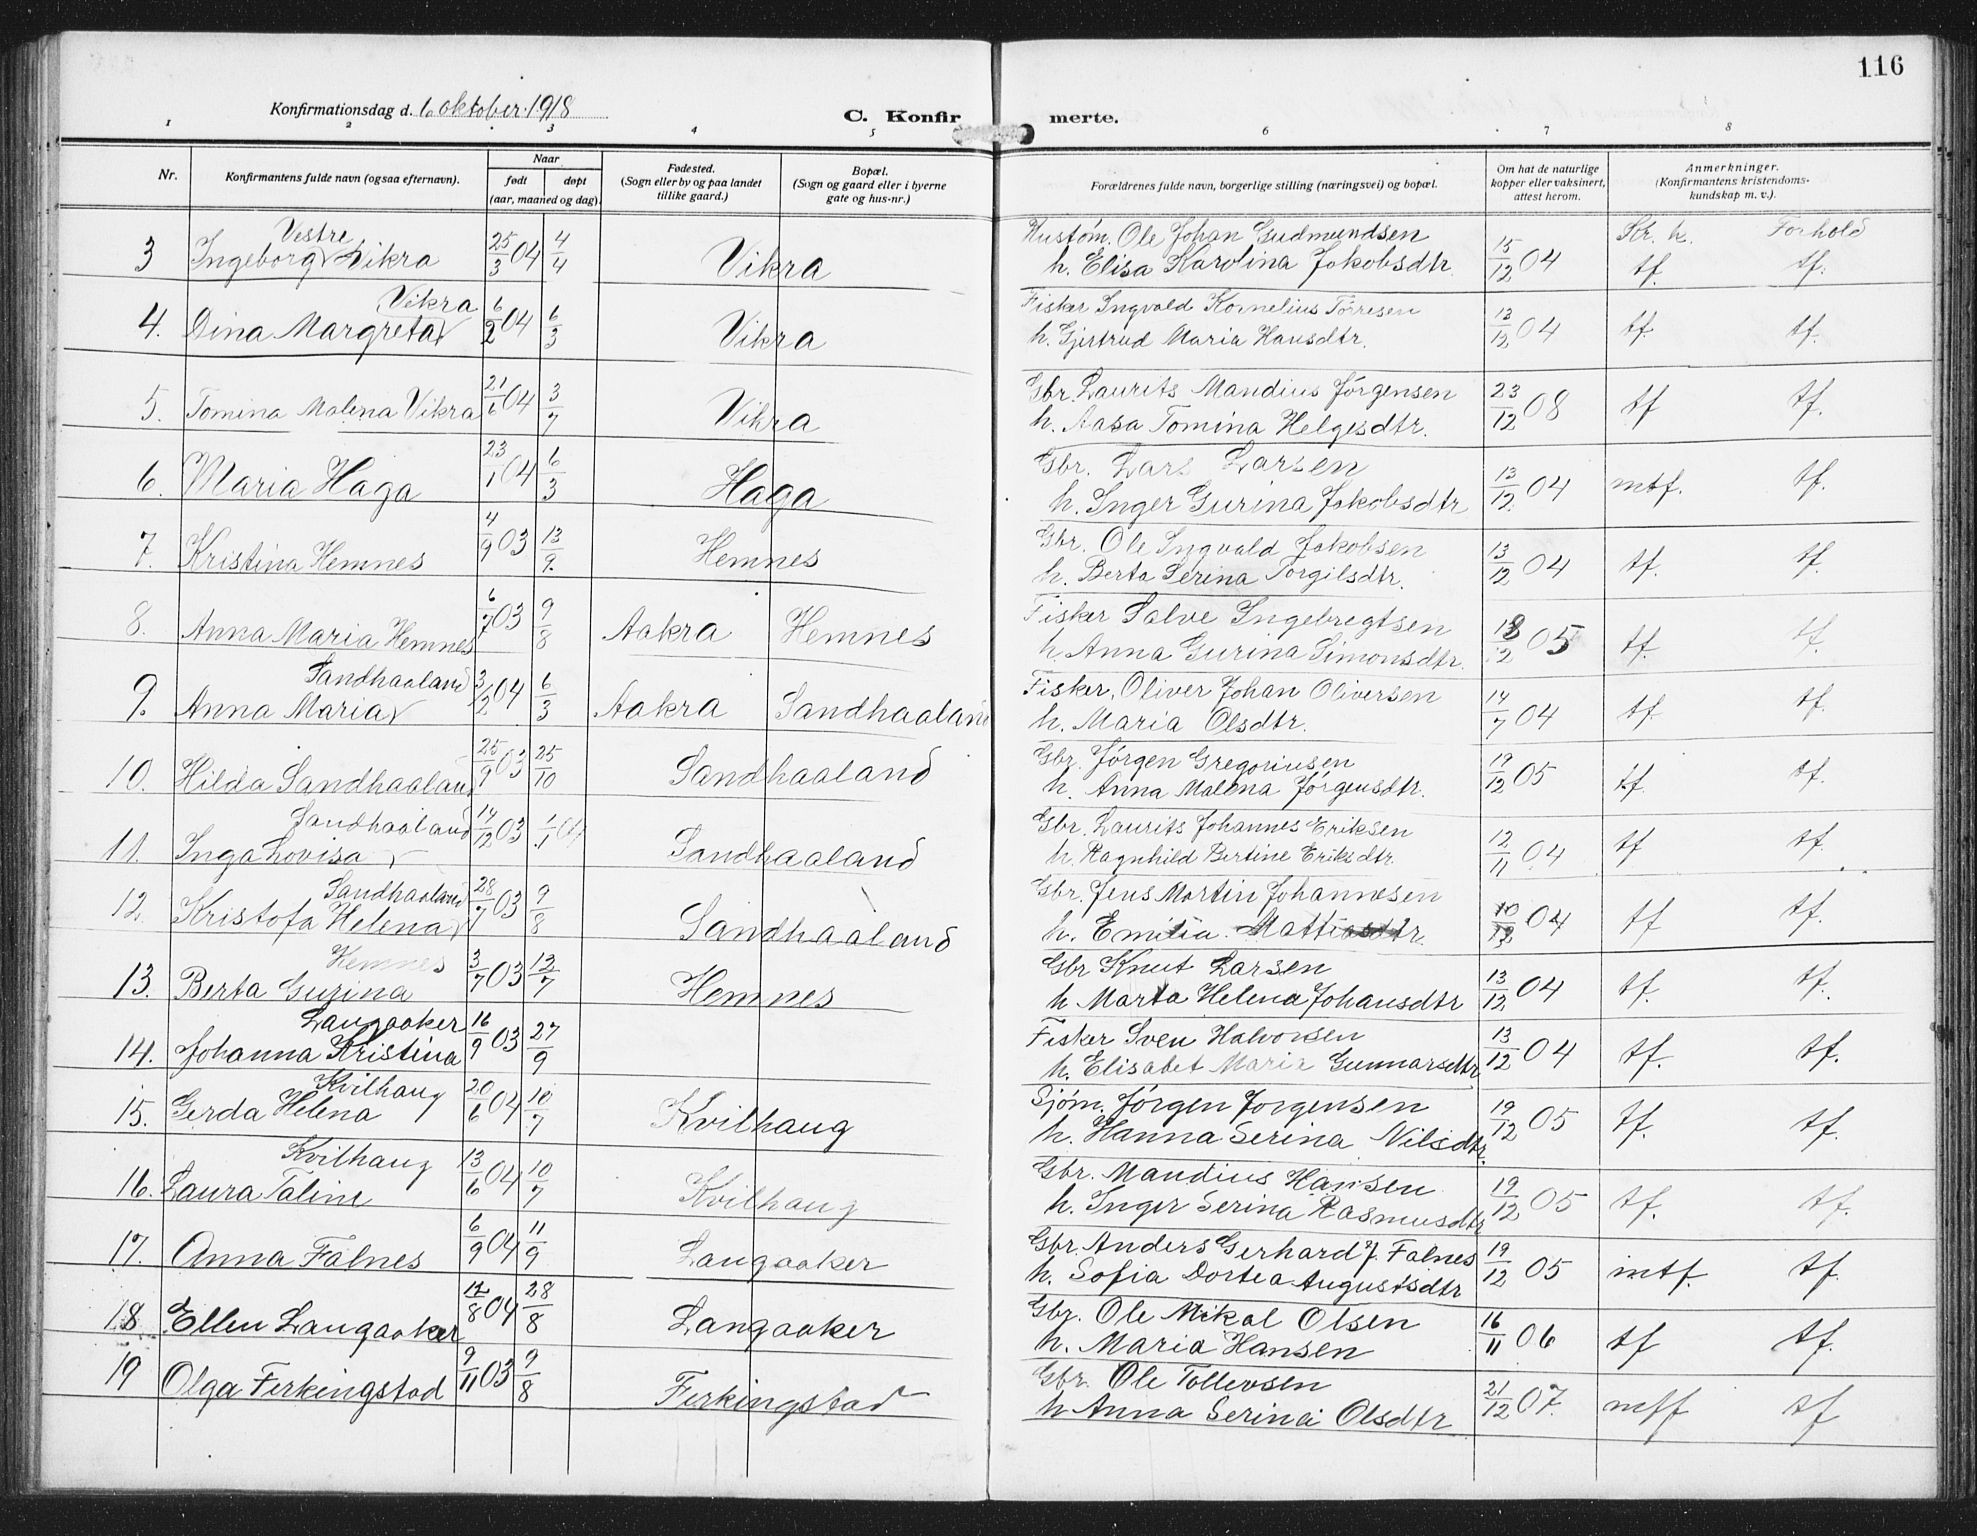 116
Konfirmationsdag d. 6 oktober 1918
C. Konfir merte.
1 2 3 4 5 6 7 8
Nr.
Konfirmantens fulde navn (ogsaa efternavn).
Naar
født døpt
(aar, maaned og dag).
Fødested.
(Sogn eller by og paa landet
tillike gaard.)
Bopæl.
(Sogn og gaard eller i byerne
gate og hus-nr.)
Forældrenes fulde navn, borgerlige stilling (næringsvei) og bopæl.
Om hat de naturlige
kopper eller vaksinert,
attest herom.
Anmerkninger.
(Konfirmantens kristendoms-
kundskap m. v.).
Vestre
3 Ingeborg Vikra 25/3 04 4/4 Vikra
Hustøm. Ole Johan Gudmundsen Kr. k. Forhold
h. Elisa Karolina Jakobsdtr. 15/12 04 tf. tf.
Vikra
4. Dina Margreta 6/2 04 6/3 Vikra
Fisker Ingvald Kornelius Tørresen
h. Gjertrud Maria Hansdtr. 13/12 04 tf. tf.
5. Tomina Malena Vikra 21/6 04 3/7 Vikra
Gbr. Laurits Mandius Jørgensen
h. Aasa Tomina Helgesdtr. 23/12 08 tf tf.
6. Maria Haga 23/1 04 6/3 Haga
Gbr. Lars Larsen
h. Inger Gurina Jakobsdtr 13/12 04 mtf. tf.
7. Kristina Hemnes 4/9 03 13/9. Hemnes
Gbr. Ole Ingvald Jakobsen
h. Berta Serina Torgilsdtr. 13/12 04 tf. tf.
8. Anna Maria Hemnes 6/7 03 9/8 Aakra Hemnes
Fisker Salve Ingebregtsen
h. Anna Gurina Simonsdtr. /12 05 tf. tf.
Sandhaaland
9. Anna Maria 3/2 04 6/3 Aakra Sandhaaland
Fisker, Oliver Johan Oliversen
h. Maria Olsdtr. 14/7 04 tf tf.
10. Hilda Sandhaaland 25/9 03 25/10 Sandhaaland
Gbr. Jørgen Gregoriusen
h. Anna Malena Jørgensdtr. 19/12 05 tf. tf.
Sandhaaland
11. Inga Lovisa 14/12 03 1/1 04 Sandhaaland
Gbr. Laurits Johannes Eriksen
h. Ragnhild Bertine Eriksdtr. 12/11 04 tf tf.
Sandhaaland
12. Kristofa Helena 28/7 03 9/8 Sandhaaland
Gbr. Jens Martin Johannesen
h. Emilia Mattiasdtr. 10/12 04 tf tf.
Hemnes
13. Berta Gurina 3/7 03 12/7 Hemnes
Gbr Knut Larsen
h Marta Helena Johansdtr 13/12 04 tf. tf.
Langaaker
14. Johanna Kristina 16/9 03 27/9
Fisker Sven Halvorsen
h. Elisabet Maria Gunnarsdtr 13/12 04 tf. tf.
Kvilhaug
15. Gerda Helena 20/6 04 10/7 Kvilhaug
Sjøm. Jørgen Jorgensen
h. Hanna Serina Nilsdtr. 19/12 05 tf. tf.
Kvilhaug
16. Laura Taline 13/6 04 10/7 Kvilhaug
Gbr. Mandius Hansen
h. Inger Serina Rasmusdtr 19/12 05 tf. tf.
17. Anna Falnes 6/9 04 11/9 Langaaker
Gbr. Anders Gerhard J. Falnes
h. Sofia Dortea Augustsdtr 19/12 05 mtf. tf.
18 Ellen Langaaker 12/8 04 28/8 Langaaker
Gbr. Ole Mikal Olsen
h. Maria Hansen 16/11 06 tf tf.
19 Olga Ferkingstad 9/11 03 9/8 Ferkingstad
Gbr. Ole Tollevsen
h Anna Serina Olsdtr 21/12 07. mtf tf